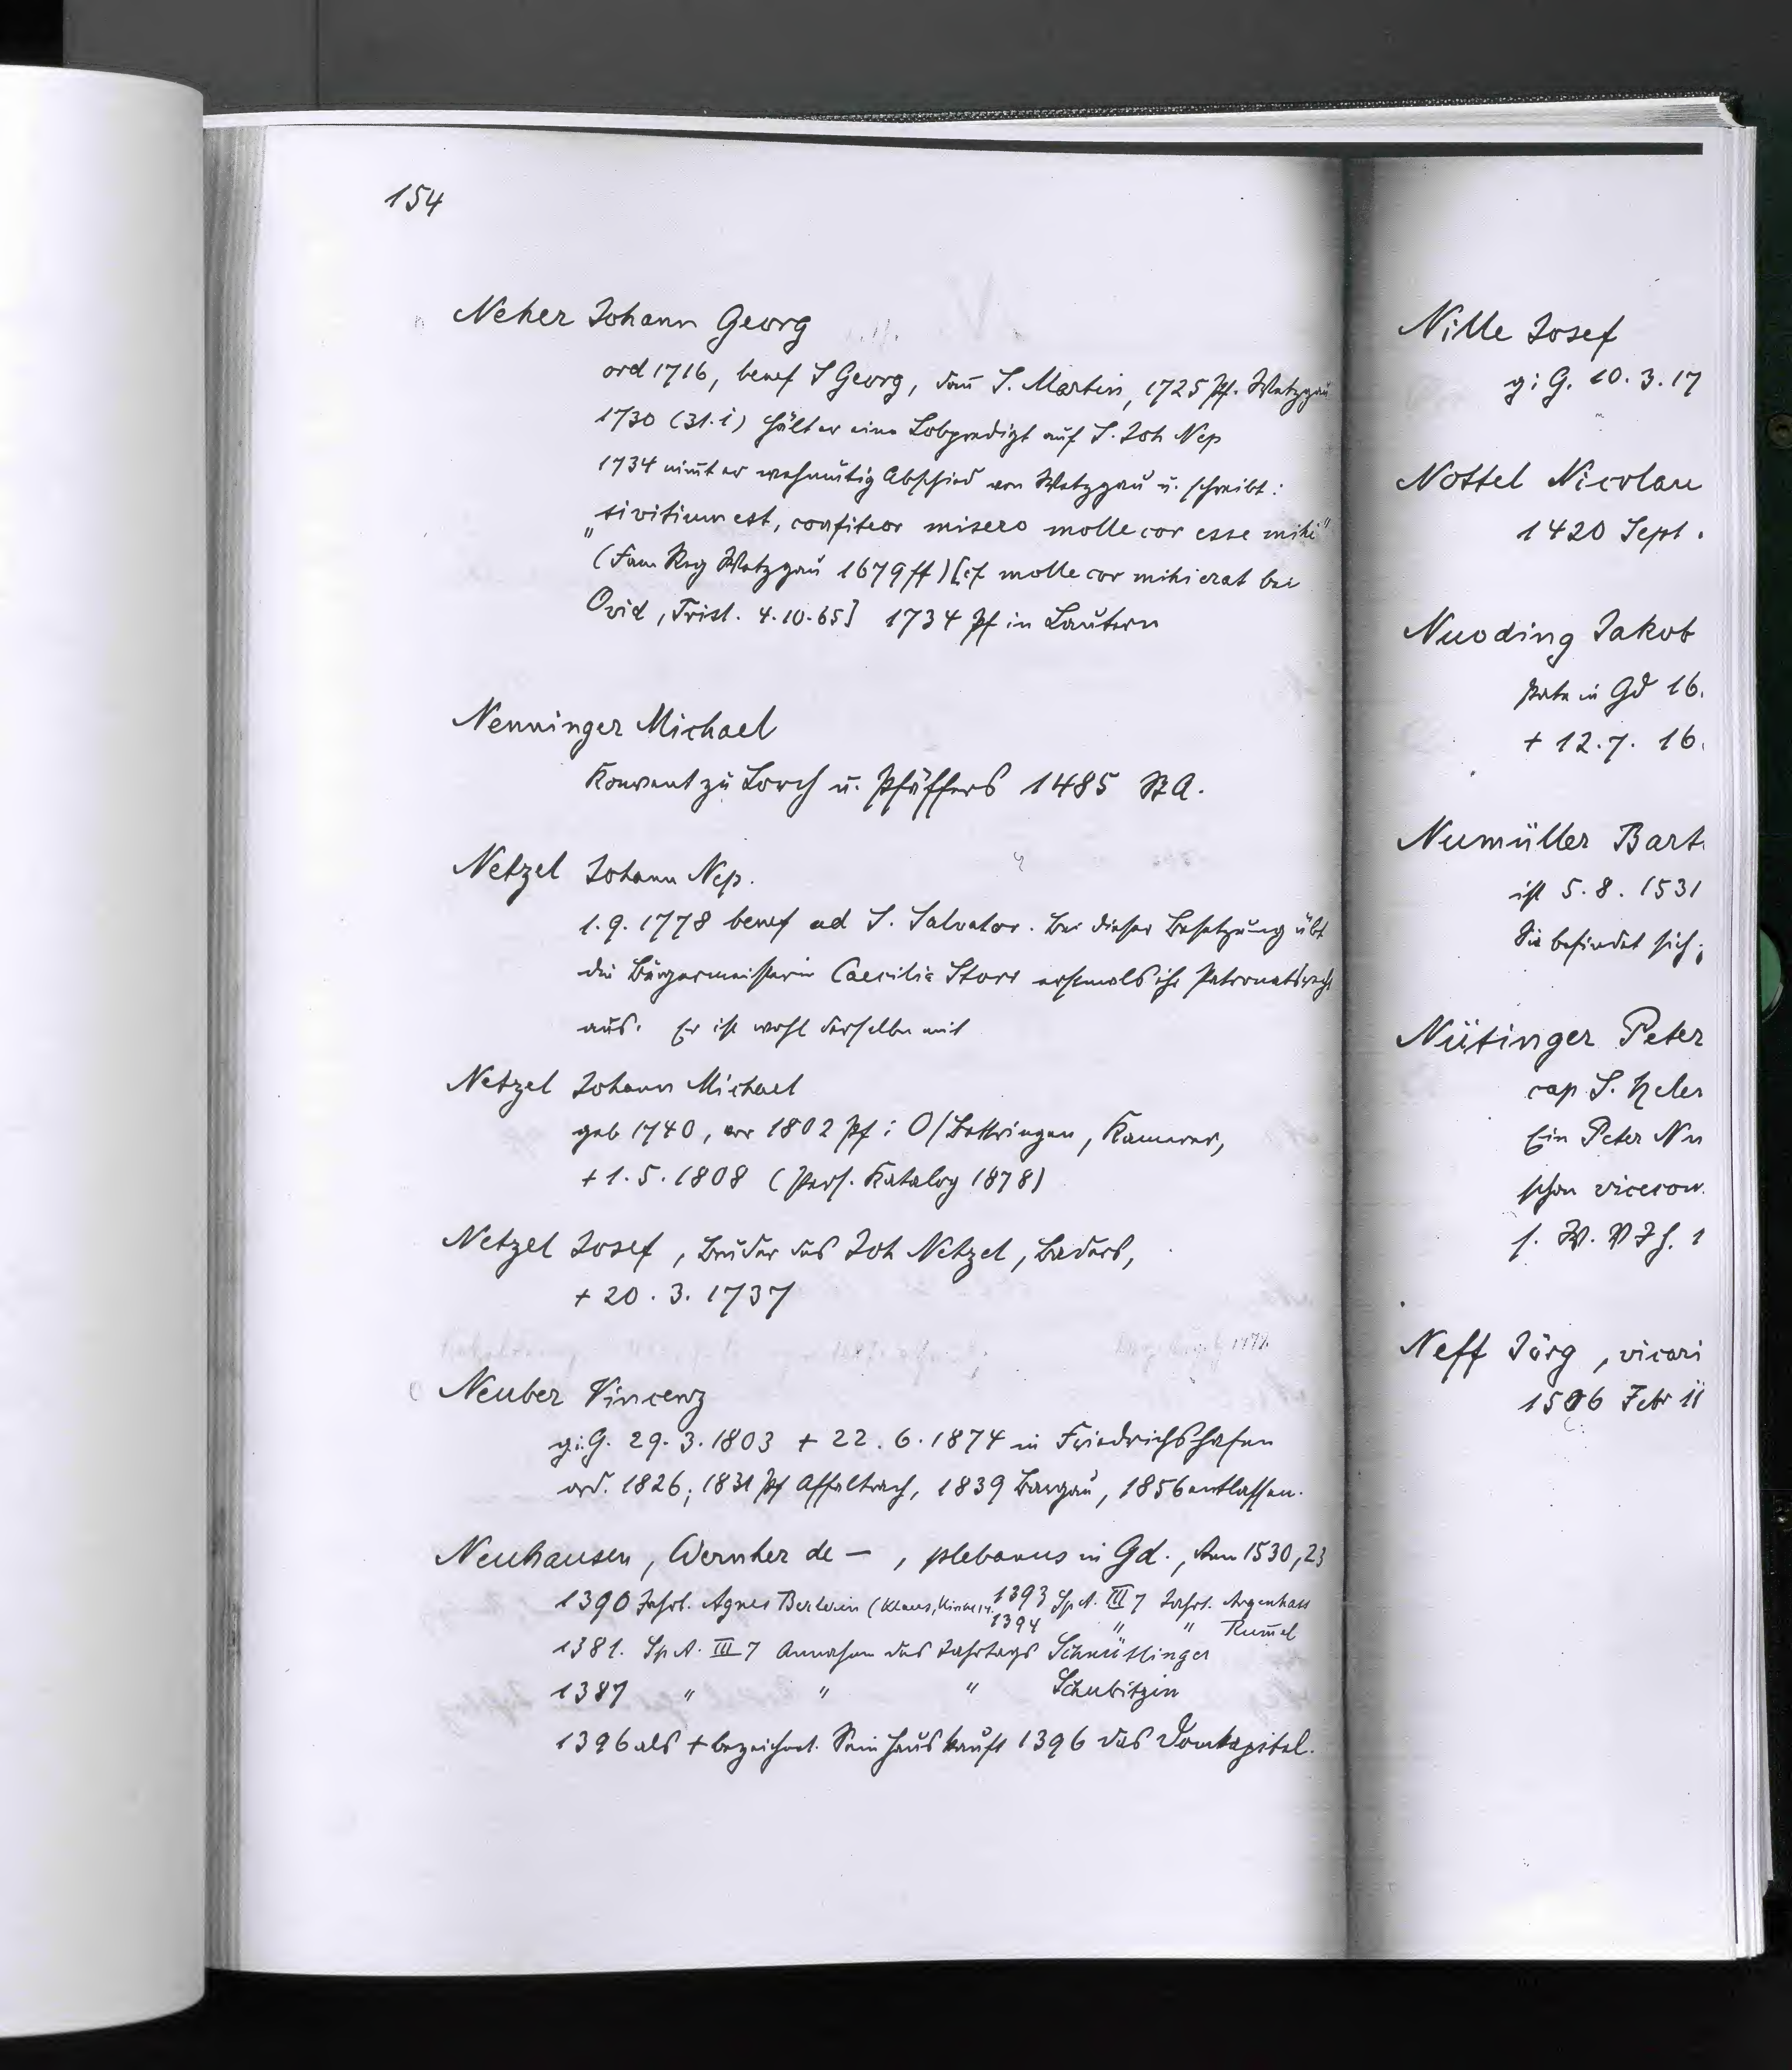 154
Neher Johann Georg
ord 1716, benef S Georg, dañ S. Martin, 1725 Pf. Wetzgau
1730 (31.1) hält er eine Lobpredigt auf S. Joh Nep
1734 nim̄t er wehmütig Abschied von Wetzgau u. schreibt:
„sivitium est, confiteor misero molle cor esse mihi"
(Fam Reg Wetzgau 1679 ff) [cf molle cor mihi erat bei
Ovid, Trist. 4.10.65] 1734 Pf in Lautern
Nenninger Michael
Konvent zu Lorch u. Pfäffers 1485 StA.
Netzel Johann Nep.
1.9.1778 benef ad S. Salvator. Bei dieser Besetzung übt
die Bürgermeisterin Caecilia Storr erstmals ihr Patronatsrecht
aus. Er ist wohl derselbe mit
Netzel Johann Michael
geb 1740, vor 1802 Pf i O/Bettringen, Kamerer,
+ 1.5.1808 (Pers. Katalog 1878)
Netzel Josef, Bruder des Joh Netzel, Baders,
+ 20.3.1737
Neuber Vincenz
g.i.G. 29.3.1803 + 22.6.1874 in Friedrichshafen
ord. 1826; 1831 Pf Affaltrach, 1839 Bargau, 1856 entlassen.
Neuhausen, Wernher de —, plebanus in Gd., Anm 1530, 23
1390 Jahrt. Agnes Berlwin (Klaus, 1393 SpA. III 7 Jahrt. Argenhass
1394 " " Rum̄el
1381. SpA. III 7 Annahme des Jahrtags Schnüslinger
1387 " " " Schubitzin
1396 als + bezeichnet. Sein Haus kauft 1396 das Domkapitel.
Nille Josef
g.i.G. 10.3.17
Nottel Nicolau
1420 Sept.
Nuoding Jakob
Pate in Gd 16.
+ 12.7. 16.
Numüller Bart.
ist 5.8.1531
Sie befindet sich
Nütinger Peter
cap S.
Ein Peter Nu
schon vicecow.
s. W. V J H. 1
Neff Jörg, vicari
1506 Febr 11